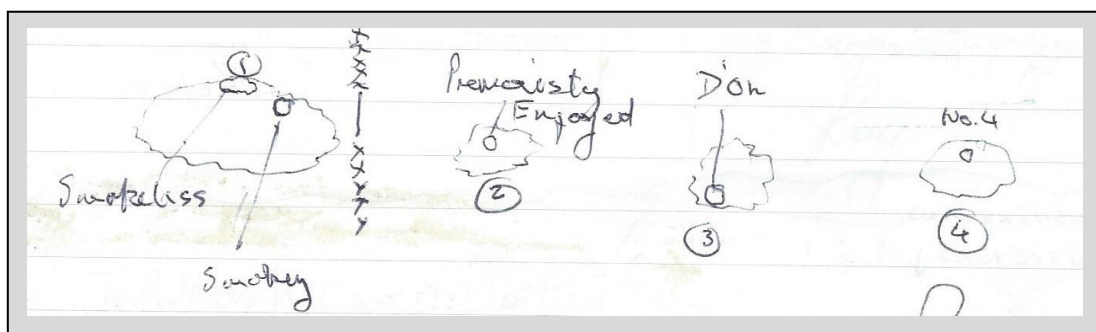 1
Smokeless
Smokey
Previously
Enjoyed
2
D'Oh
3
No.4
4